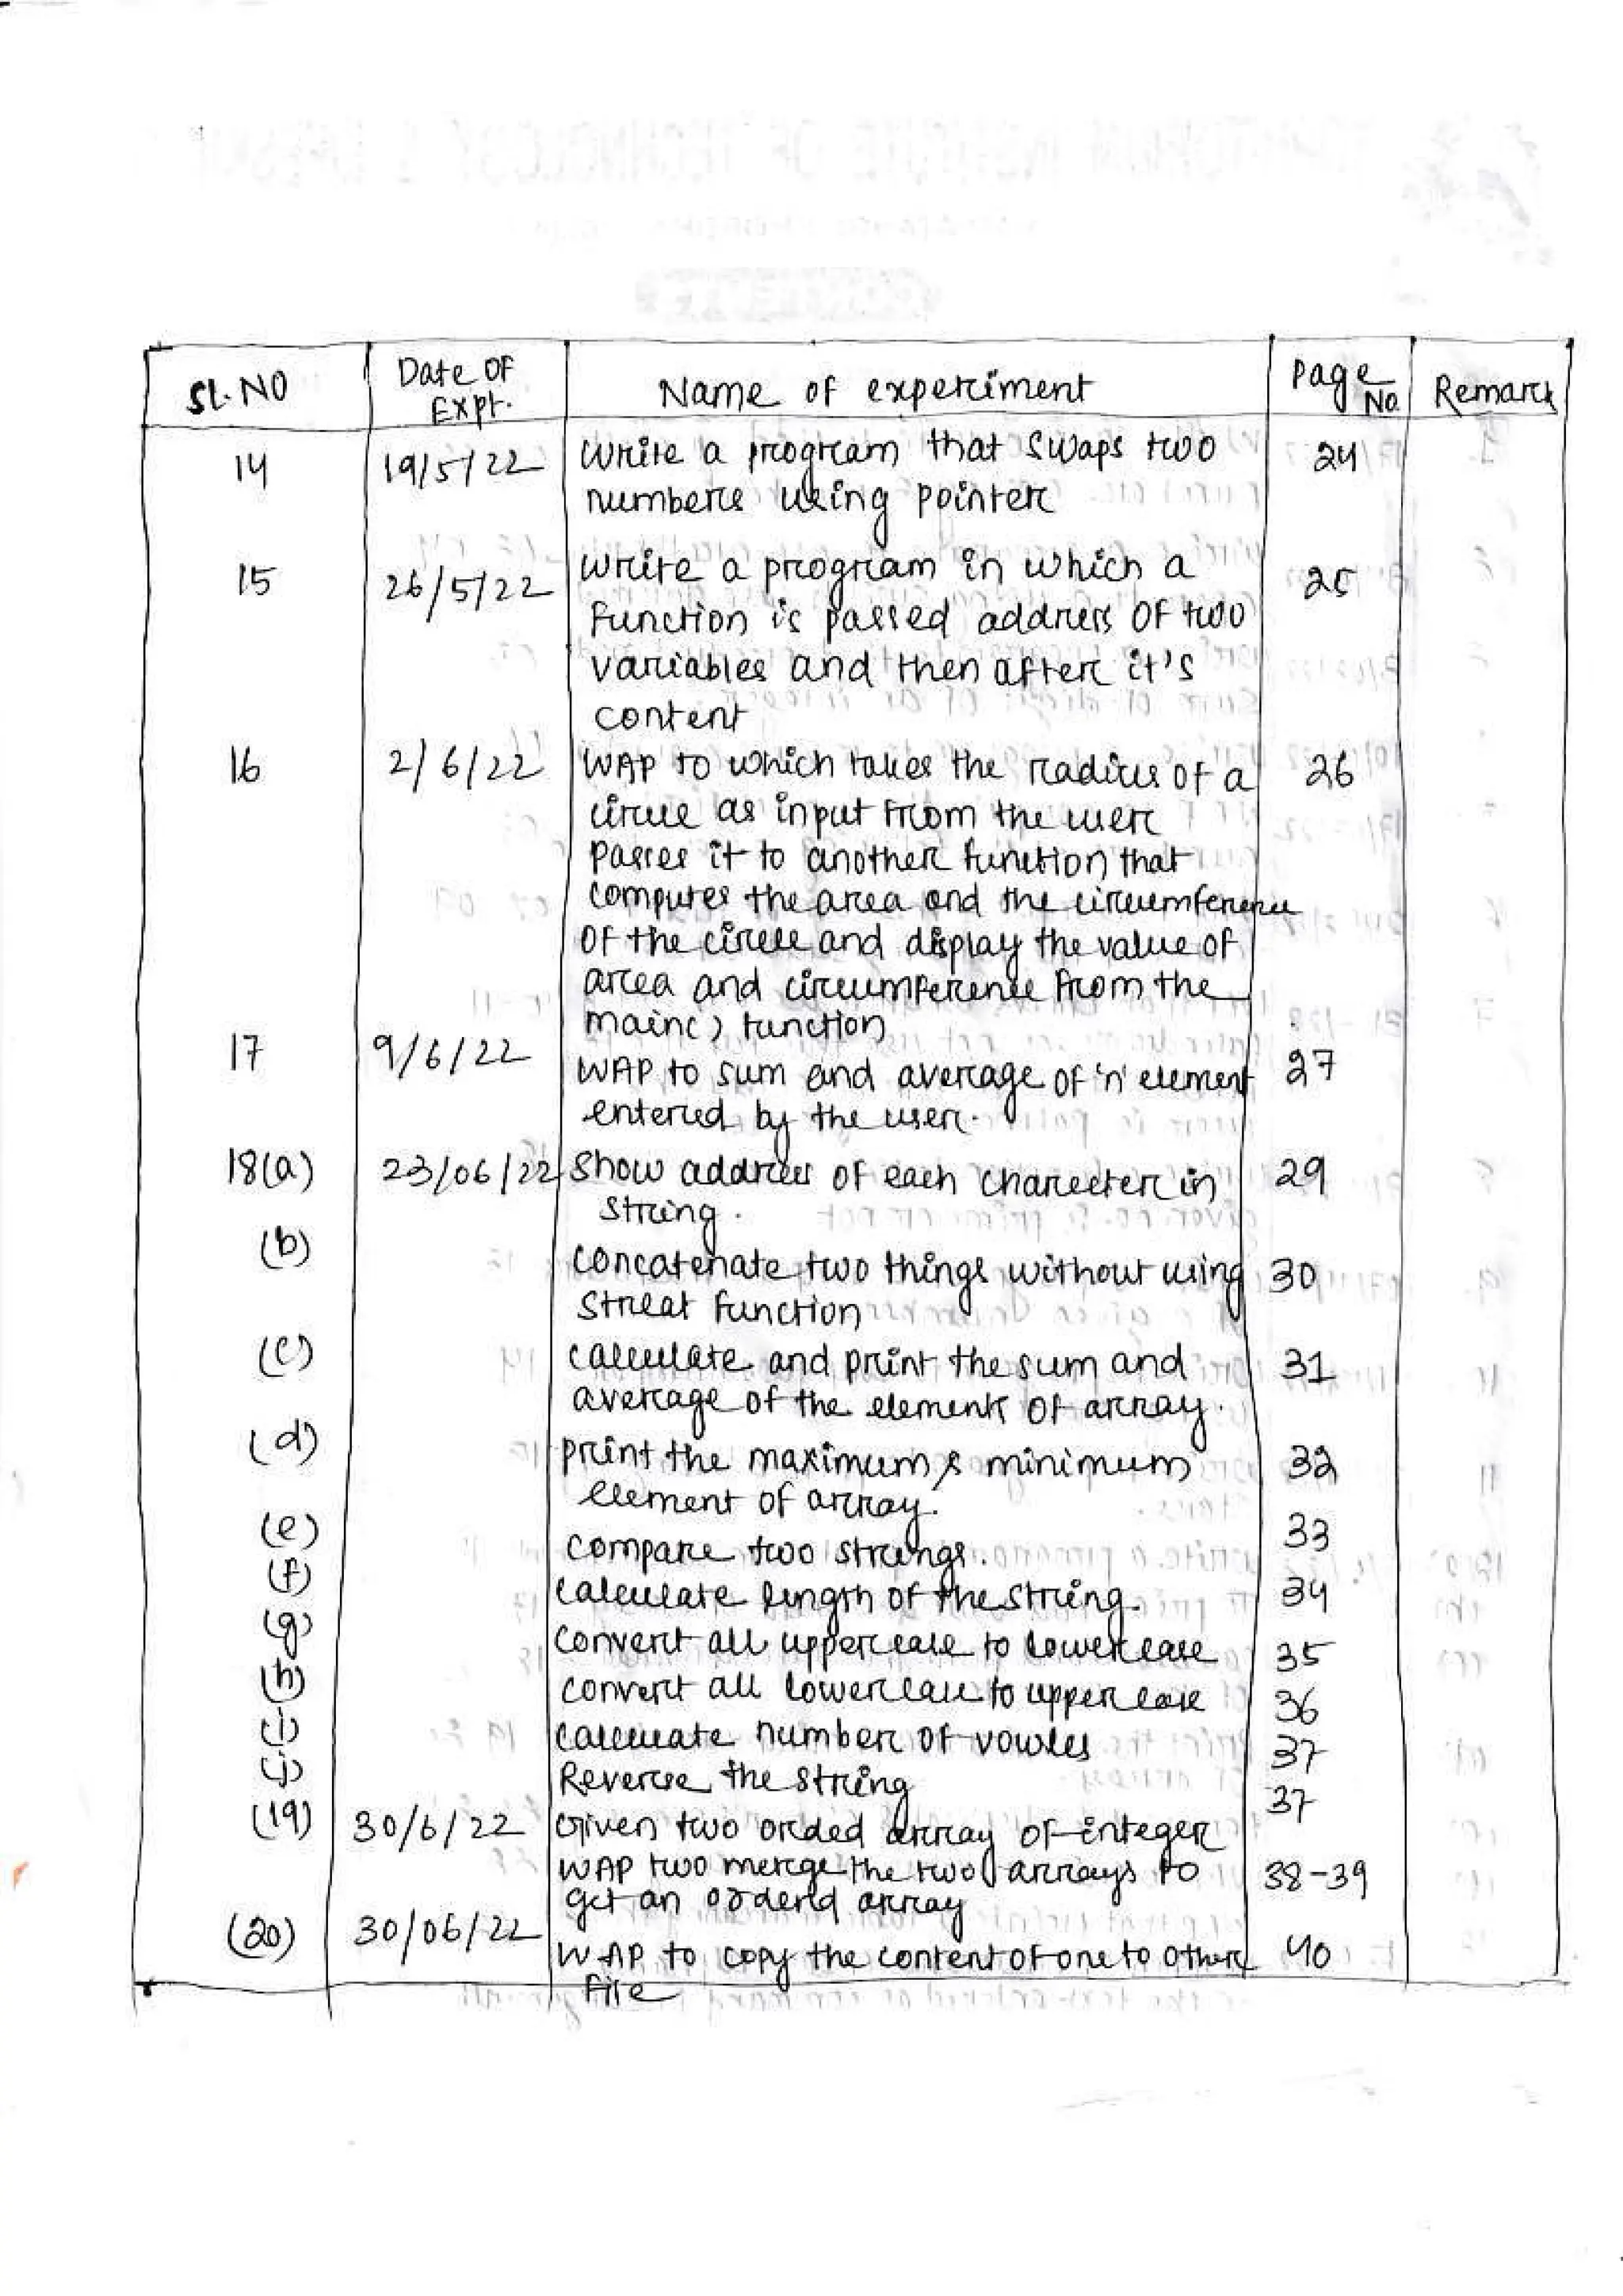 Sl. NO Date Of Expt. Name of experiment Page No. Remark
14 19/5/22 Write a program that swaps two 24
numbers using pointer
15 26/5/22 Write a program in which a 25
function is passed address of two
variables and then after it's
content
16 2/6/22 WAP to which takes the radius of a 26
circle as input from the user
passes it to another function that
computes the area and the circumference
of the circle and display the value of
area and circumference from the
main() function
17 9/6/22 WAP to sum and average of 'n' element 27
entered by the user.
18(a) 23/06/22 Show address of each charecter in 29
string.
(b) concatenate two things without using 30
strcat function
(c) calculate and print the sum and 31
average of the elements of array.
(d) print the maximum & minimum 32
element of array.
(e) compare two strings. 33
(f) calculate length of the string. 34
(g) convert all uppercase to lowercase 35
(h) convert all lowercase to uppercase 36
(i) calculate number of vowles 37
(j) Reverse the string 37
(19) 30/6/22 Given two orded array of integer
WAP two merge the two arrays to 38-39
get an orderd array
(20) 30/06/22 WAP to copy the content of one to other 40
file